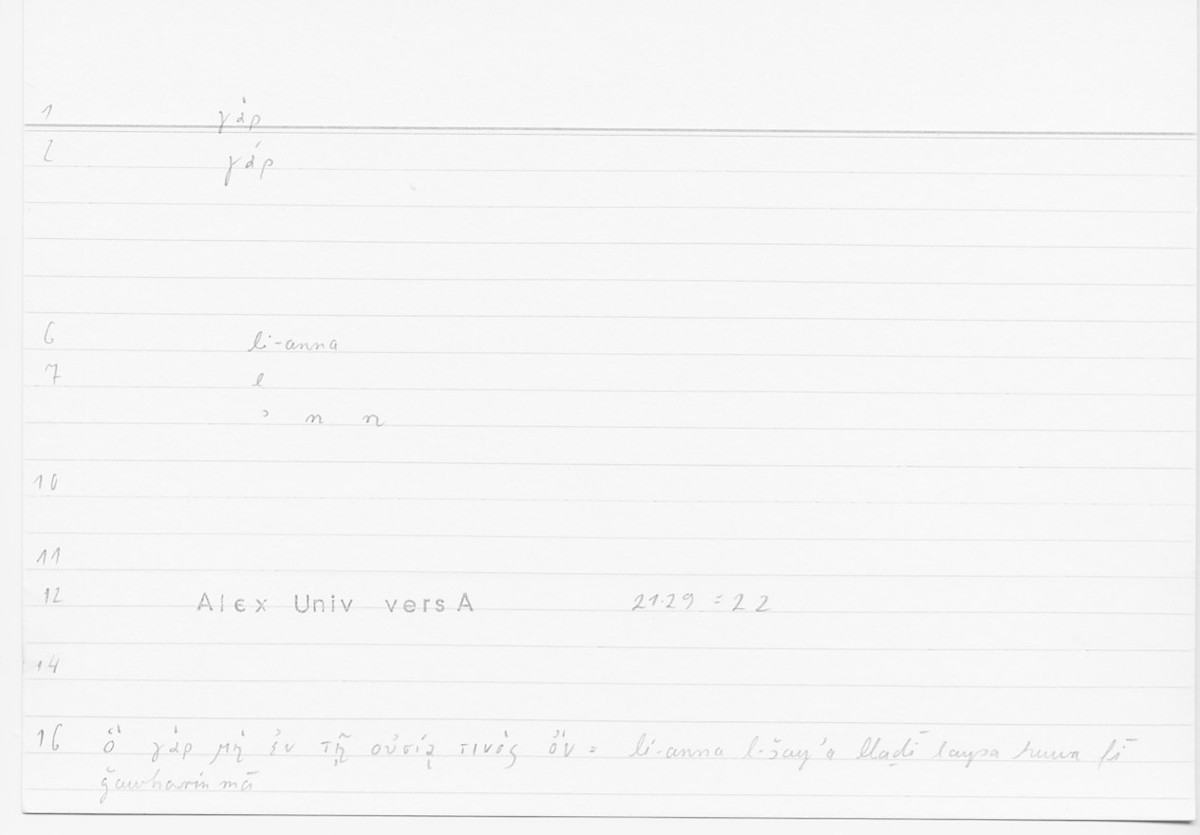 1 γὰρ
2 γάρ
6 li-anna
7 l
ʾ n n
10
11
12 Alex Univ vers A 21.29 = 22
14
16 ὃ γὰρ μὴ ἐν τῇ οὐσίᾳ τινὸς ὂν = li-anna l-šayʾa llaḏī laysa huwa fī
ǧawharin mā